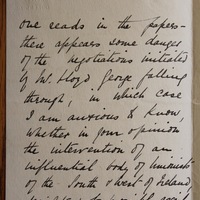 one reads in the papers –
there appears some danger
of the negotiations initiated
by Mr. Lloyd George falling
through; in which case
I am anxious to know,
whether in your opinion
the intervention of an
influential body of Unionists
of the South & West of Ireland